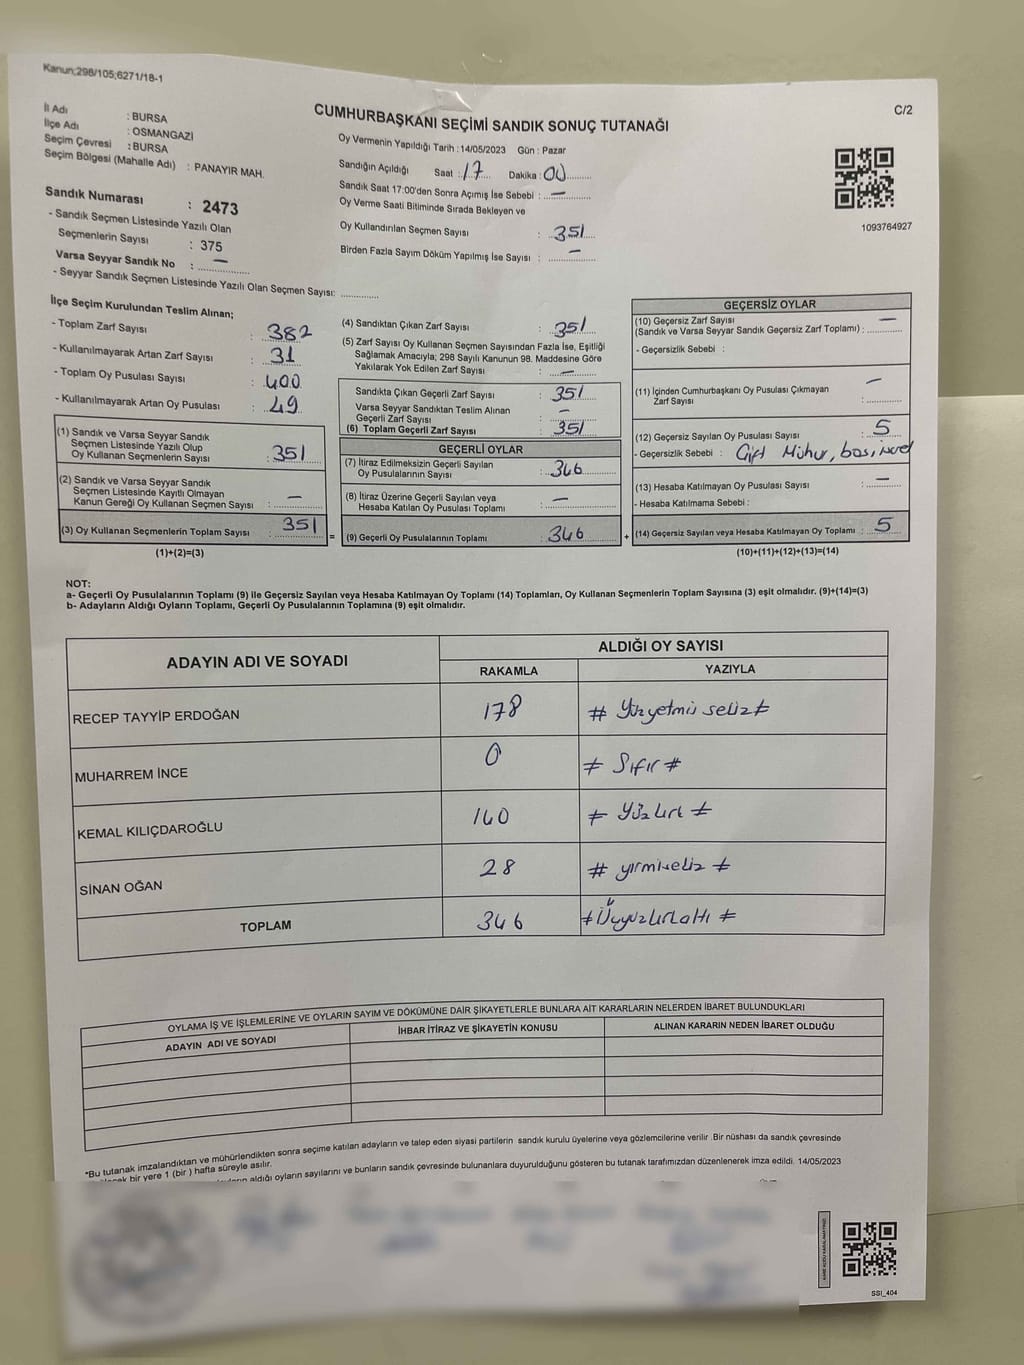 Kanun;298/105;6271/18-1
C/2
İl Adı : BURSA
İlçe Adı : OSMANGAZİ
Seçim Çevresi : BURSA
Seçim Bölgesi (Mahalle Adı) : PANAYIR MAH.
CUMHURBAŞKANI SEÇİMİ SANDIK SONUÇ TUTANAĞI
Oy Vermenin Yapıldığı Tarih :14/05/2023 Gün : Pazar
Sandığın Açıldığı Saat : 17 Dakika : 00
Sandık Saat 17:00'den Sonra Açımış İse Sebebi : —
Oy Verme Saati Bitiminde Sırada Bekleyen ve
Oy Kullandırılan Seçmen Sayısı : 351
Birden Fazla Sayım Döküm Yapılmış İse Sayısı : —
1093764927
Sandık Numarası : 2473
- Sandık Seçmen Listesinde Yazılı Olan
Seçmenlerin Sayısı : 375
Varsa Seyyar Sandık No : —
- Seyyar Sandık Seçmen Listesinde Yazılı Olan Seçmen Sayısı:
İlçe Seçim Kurulundan Teslim Alınan;
- Toplam Zarf Sayısı : 382
- Kullanılmayarak Artan Zarf Sayısı : 31
- Toplam Oy Pusulası Sayısı : 400
- Kullanılmayarak Artan Oy Pusulası : 49
(1) Sandık ve Varsa Seyyar Sandık
Seçmen Listesinde Yazılı Olup
Oy Kullanan Seçmenlerin Sayısı : 351
(2) Sandık ve Varsa Seyyar Sandık
Seçmen Listesinde Kayıtlı Olmayan
Kanun Gereği Oy Kullanan Seçmen Sayısı : —
(3) Oy Kullanan Seçmenlerin Toplam Sayısı : 351
(1)+(2)=(3)
(4) Sandıktan Çıkan Zarf Sayısı : 351
(5) Zarf Sayısı Oy Kullanan Seçmen Sayısından Fazla İse, Eşitliği
Sağlamak Amacıyla; 298 Sayılı Kanunun 98. Maddesine Göre
Yakılarak Yok Edilen Zarf Sayısı : —
Sandıkta Çıkan Geçerli Zarf Sayısı : 351
Varsa Seyyar Sandıktan Teslim Alınan
Geçerli Zarf Sayısı : —
(6) Toplam Geçerli Zarf Sayısı : 351
GEÇERLİ OYLAR
(7) İtiraz Edilmeksizin Geçerli Sayılan
Oy Pusulalarının Sayısı : 346
(8) İtiraz Üzerine Geçerli Sayılan veya
Hesaba Katılan Oy Pusulası Toplamı : —
= (9) Geçerli Oy Pusulalarının Toplamı : 346
GEÇERSİZ OYLAR
(10) Geçersiz Zarf Sayısı —
(Sandık ve Varsa Seyyar Sandık Geçersiz Zarf Toplamı) :
- Geçersizlik Sebebi :
(11) İçinden Cumhurbaşkanı Oy Pusulası Çıkmayan —
Zarf Sayısı :
(12) Geçersiz Sayılan Oy Pusulası Sayısı : 5
- Geçersizlik Sebebi : Çift Mühür, boş,
(13) Hesaba Katılmayan Oy Pusulası Sayısı : —
- Hesaba Katılmama Sebebi :
+ (14) Geçersiz Sayılan veya Hesaba Katılmayan Oy Toplamı : 5
(10)+(11)+(12)+(13)=(14)
NOT:
a- Geçerli Oy Pusulalarının Toplamı (9) ile Geçersiz Sayılan veya Hesaba Katılmayan Oy Toplamı (14) Toplamları, Oy Kullanan Seçmenlerin Toplam Sayısına (3) eşit olmalıdır. (9)+(14)=(3)
b- Adayların Aldığı Oyların Toplamı, Geçerli Oy Pusulalarının Toplamına (9) eşit olmalıdır.
ADAYIN ADI VE SOYADI
ALDIĞI OY SAYISI
RAKAMLA YAZIYLA
RECEP TAYYİP ERDOĞAN 178 # Yüzyetmiş sekiz #
MUHARREM İNCE 0 # Sıfır #
KEMAL KILIÇDAROĞLU 140 # Yüzkırk #
SİNAN OĞAN 28 # yirmisekiz #
TOPLAM 346 # Üçyüzkırkaltı #
OYLAMA İŞ VE İŞLEMLERİNE VE OYLARIN SAYIM VE DÖKÜMÜNE DAİR ŞİKAYETLERLE BUNLARA AİT KARARLARIN NELERDEN İBARET BULUNDUKLARI
ADAYIN ADI VE SOYADI İHBAR İTİRAZ VE ŞİKAYETİN KONUSU ALINAN KARARIN NEDEN İBARET OLDUĞU
*Bu tutanak imzalandıktan ve mühürlendikten sonra seçime katılan adayların ve talep eden siyasi partilerin sandık kurulu üyelerine veya gözlemcilerine verilir .Bir nüshası da sandık çevresinde
bir yere 1 (bir ) hafta süreyle asılır.
aldığı oyların sayılarını ve bunların sandık çevresinde bulunanlara duyurulduğunu gösteren bu tutanak tarafımızdan düzenlenerek imza edildi. 14/05/2023
SSI_404